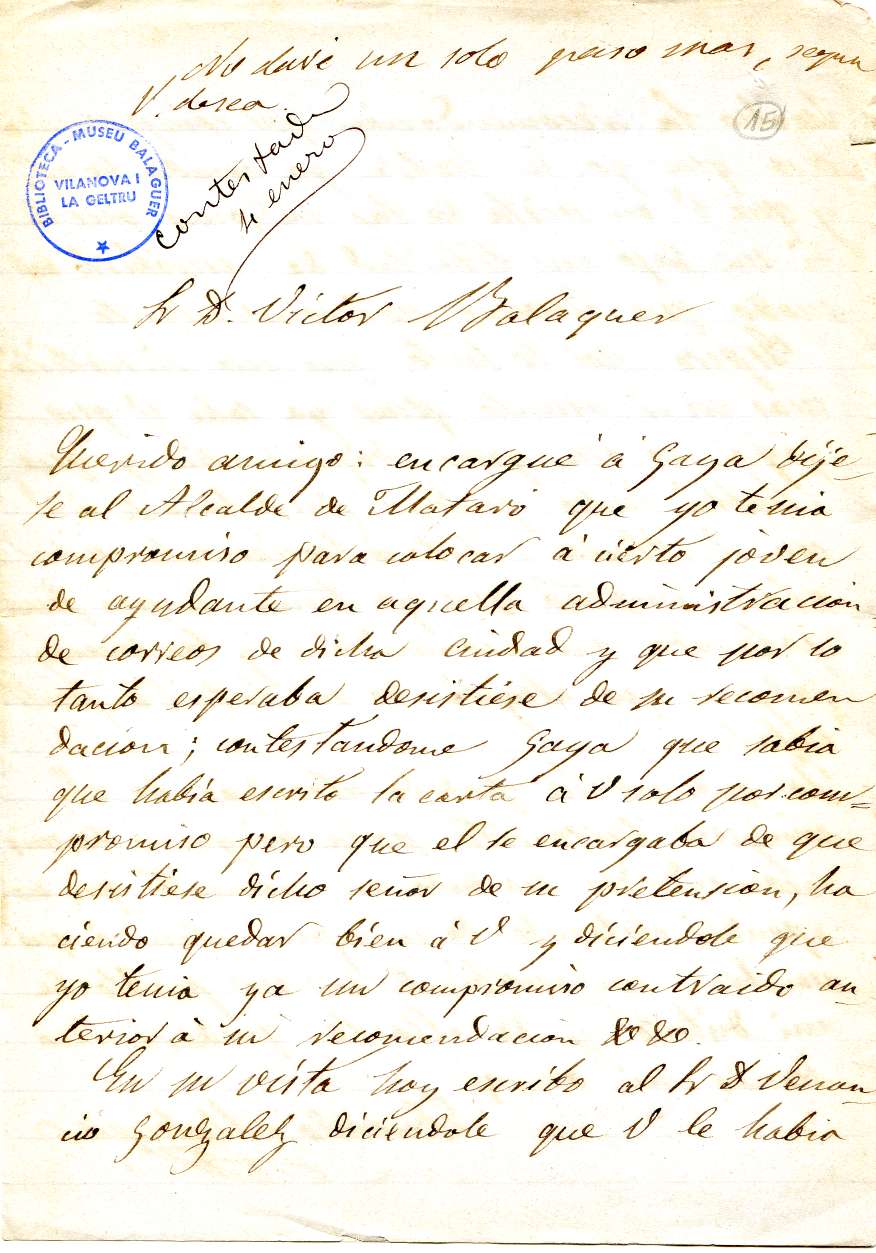 No daré un solo paso mas, segun
V. desea.
15
BIBLIOTECA - MUSEU BALAGUER
VILANOVA I
LA GELTRU
contestada
4 enero
Sr D. Victor Balaguer
Querido amigo: encargué á Gaya dije-
se al Alcalde de Mataró que yo tenia
compromiso para colocar á cierto jóven
de ayudante en aquella administracion
de correos de dicha ciudad y que por lo
tanto esperaba desistiése de su recomen
dacion; contestandome Gaya que sabia
que había escrito la carta á V solo por com=
promiso pero que el se encargaba de que
desistiese dicho señor de su pretension, ha
ciendo quedar bién á V y diciendole que
yo tenia ya un compromiso contraido an-
terior á su recomendación &&.
En su vista hoy escribo al Sr D Venan-
cio Gonzalez diciendole que V le habia